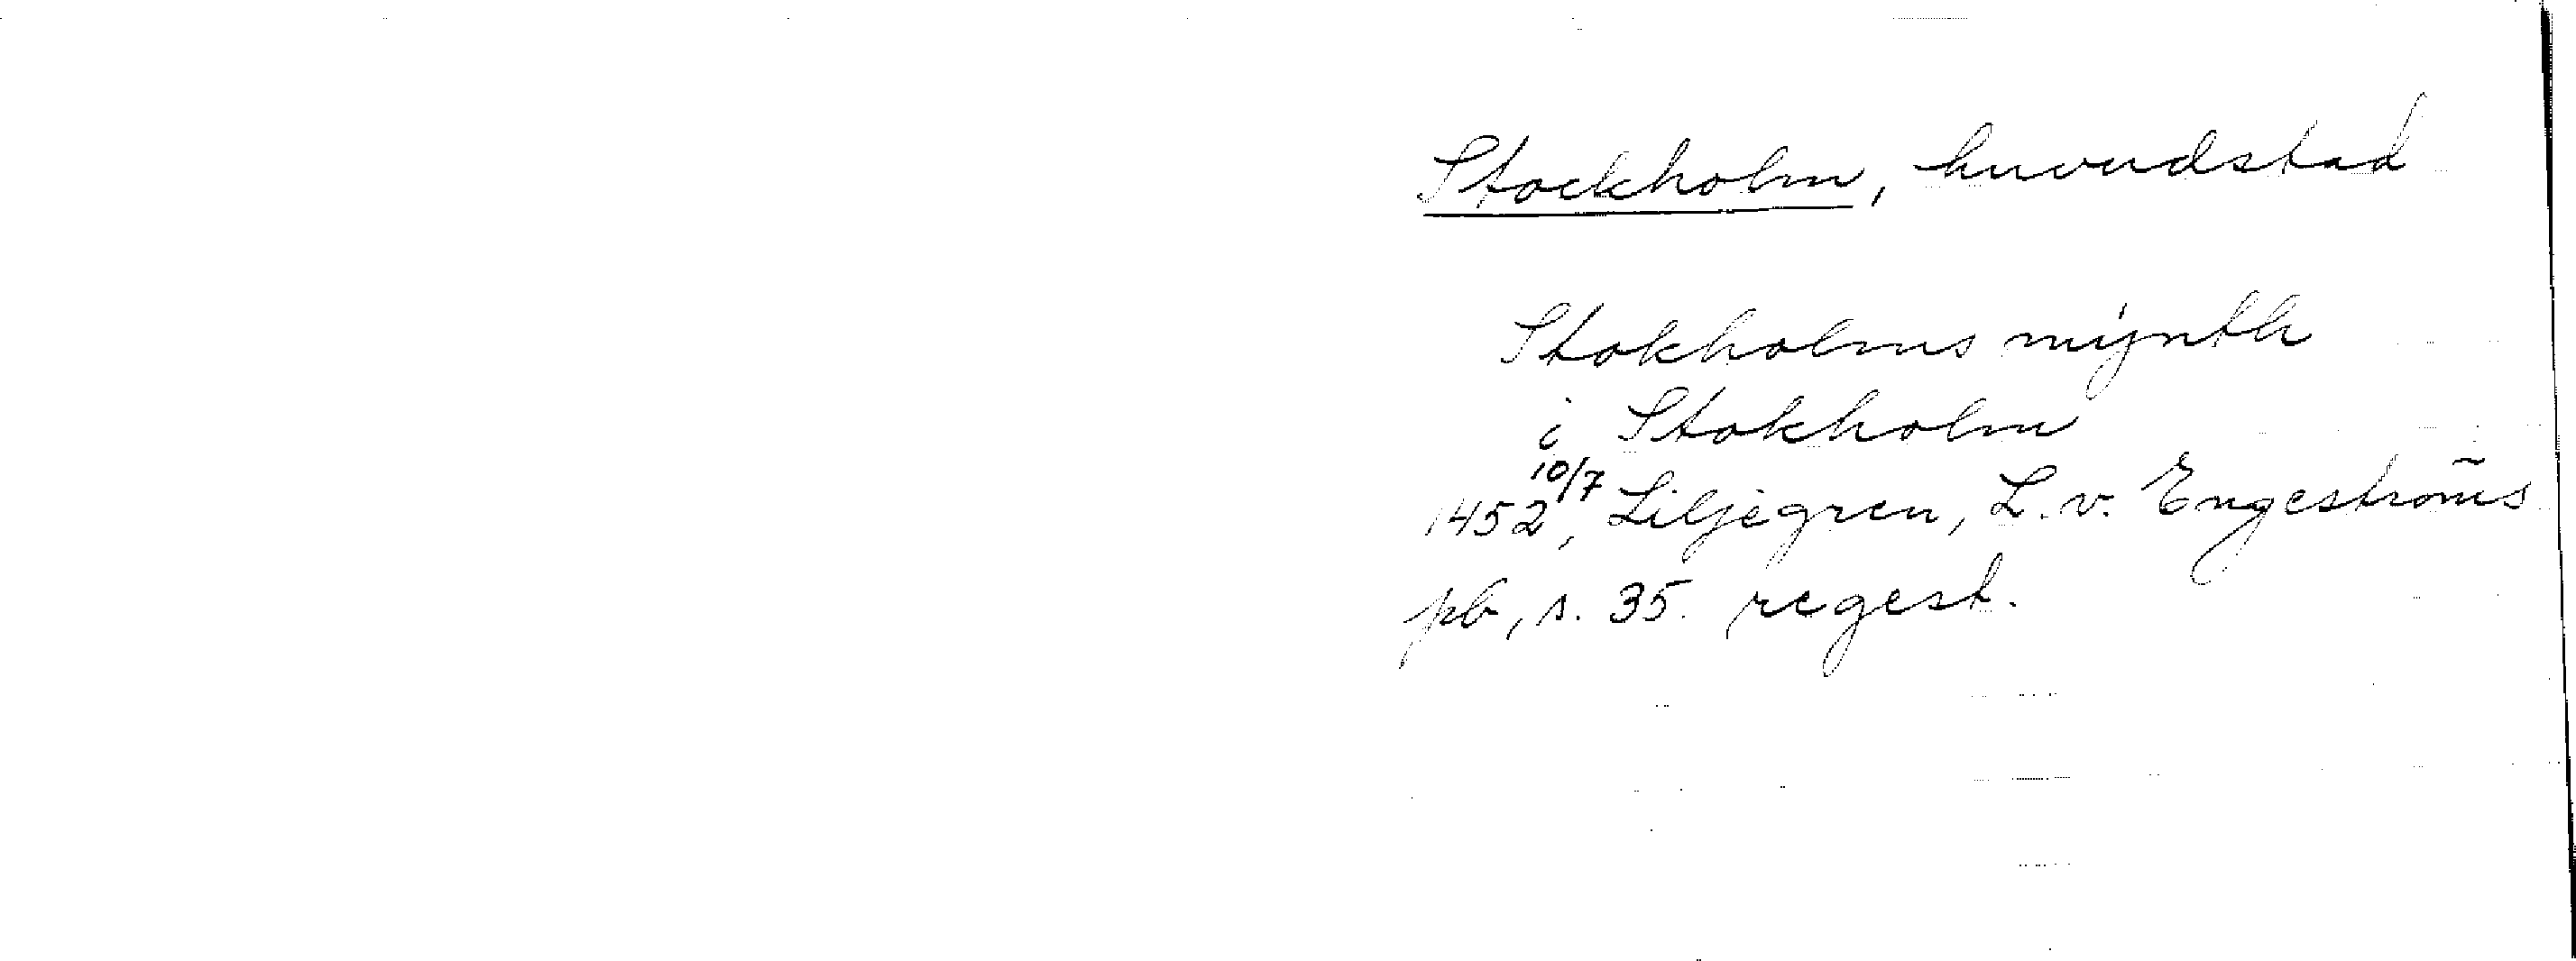 Stockholm, huvudstad
Stokholms mÿnth
i Stokholm
1452 10/7, Liljegren, L. v. Engeströms
pb, s. 35. regest.